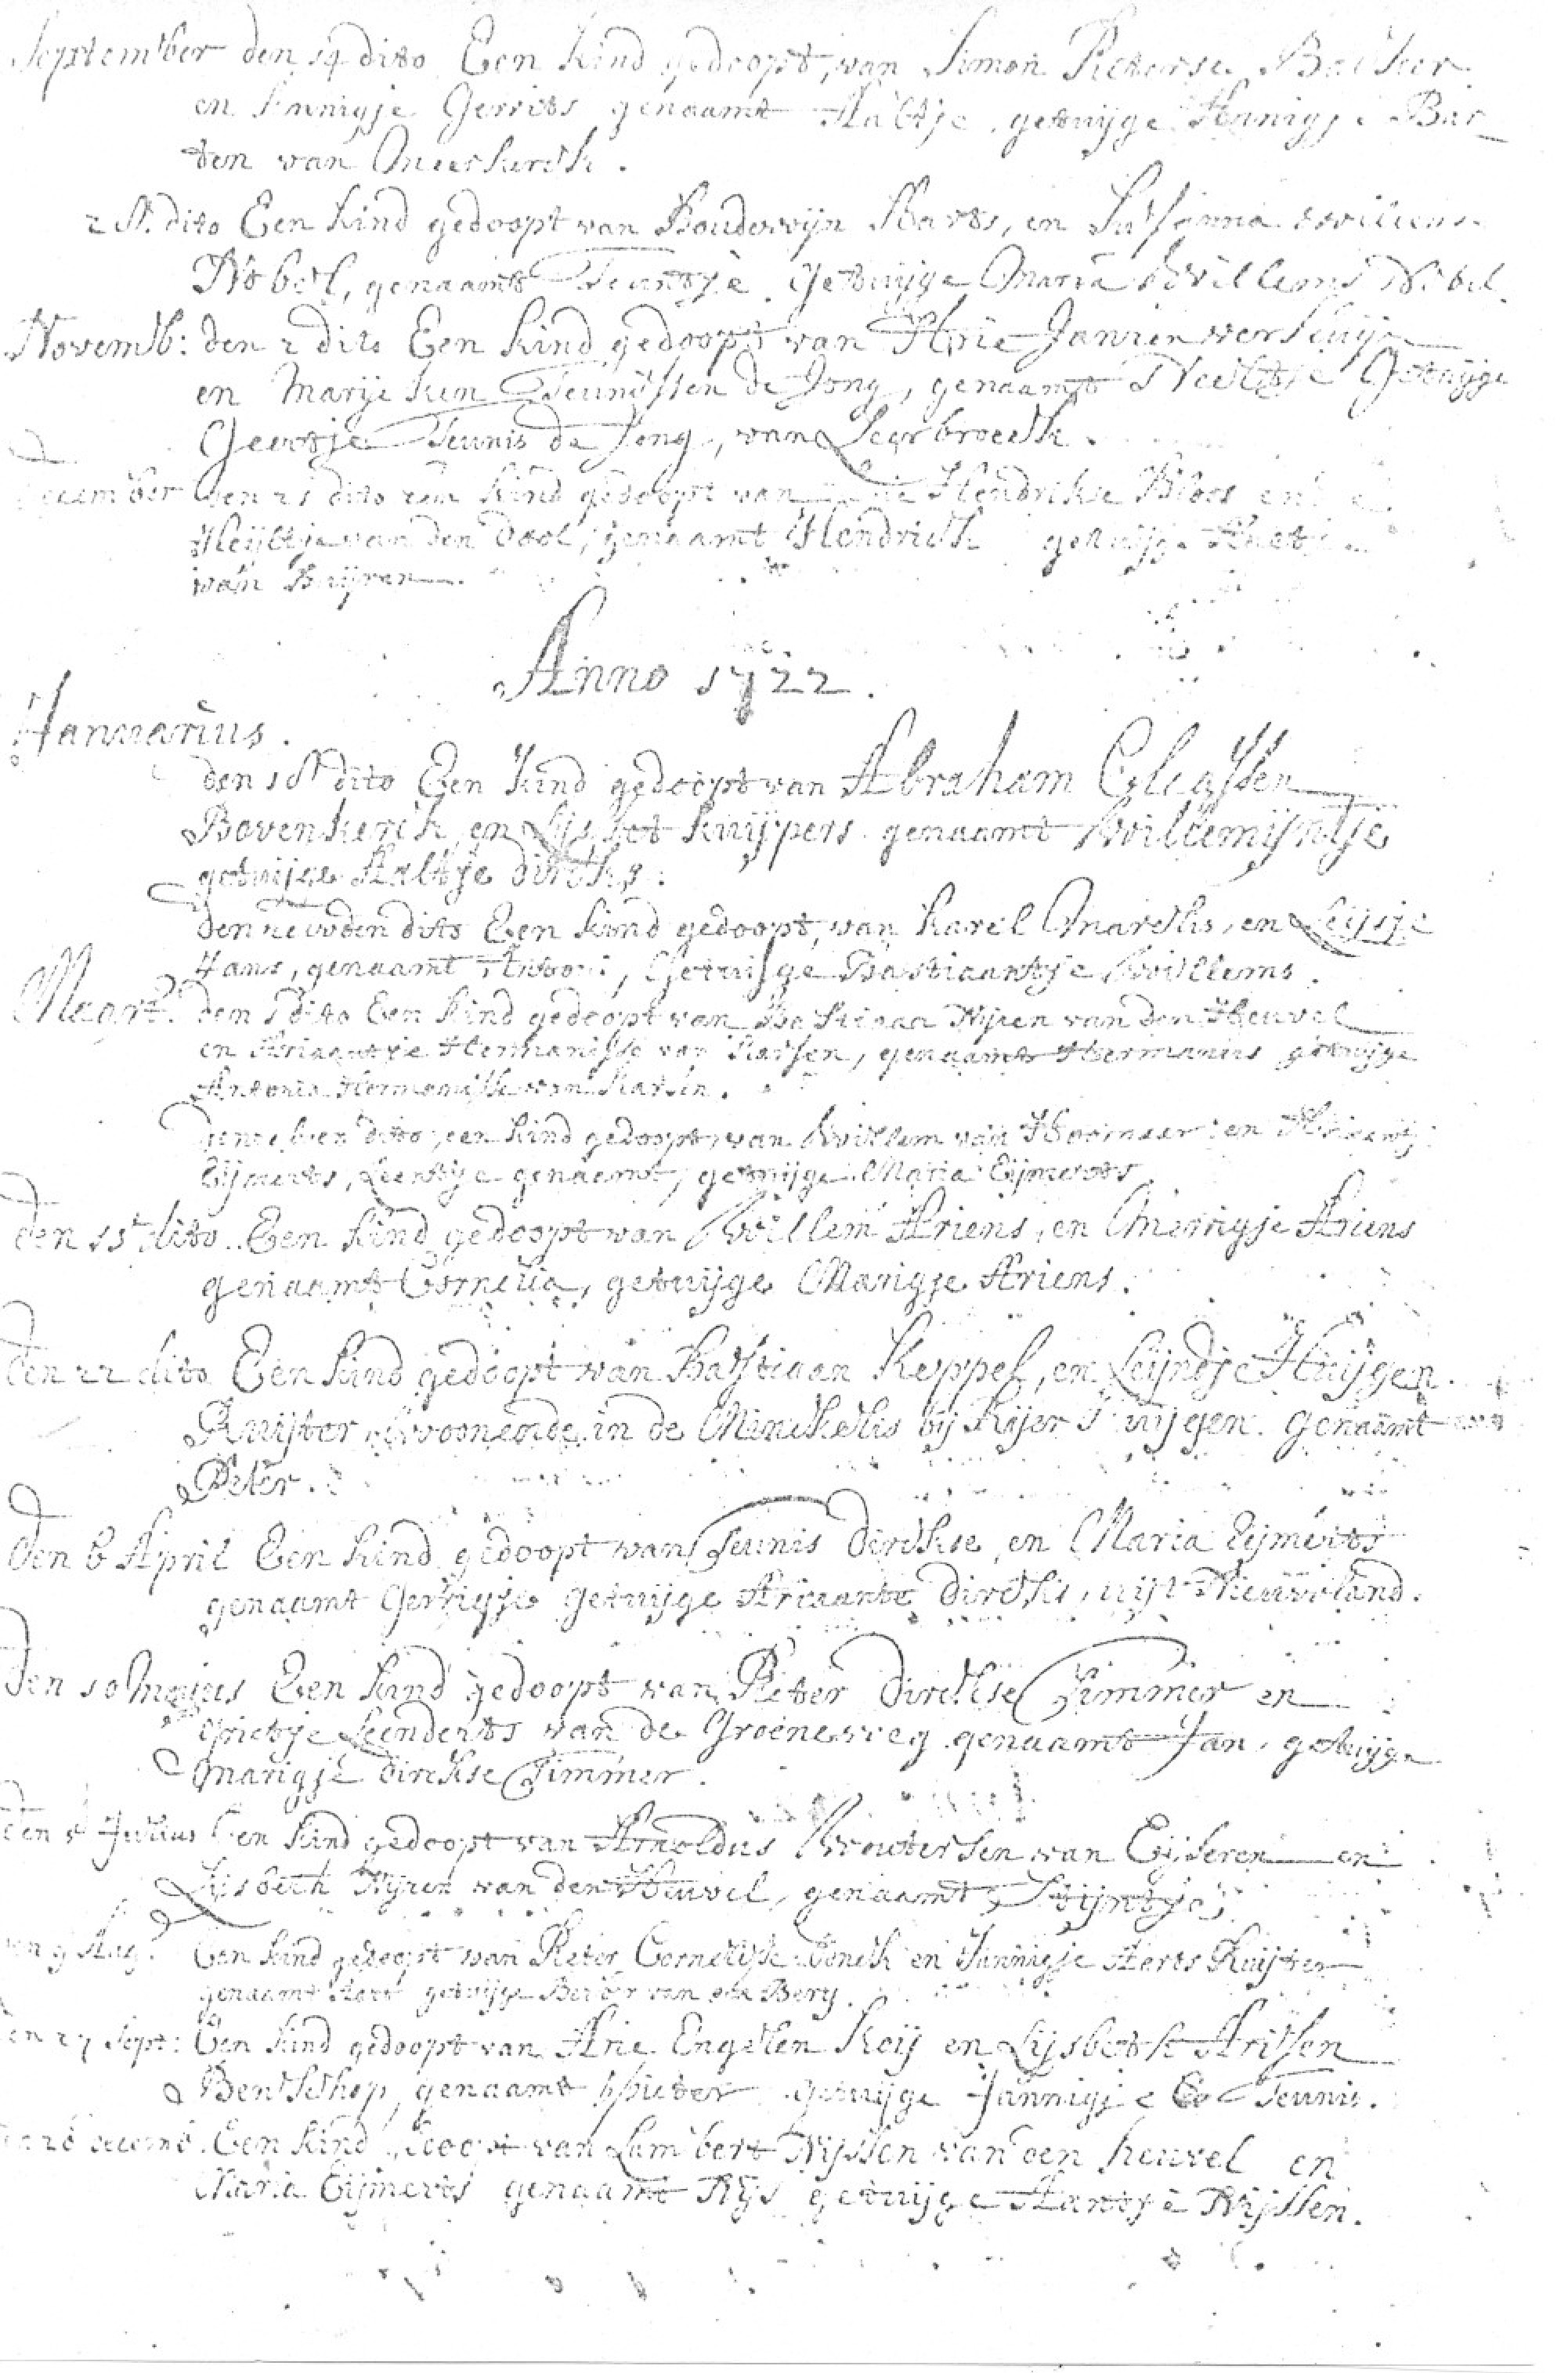 September den 14 dito Een Kind gedoopt, van Simon Pieterse Backer
en Annigje Gerrits genaamt Aaltje, getuijge Annigje Bar_
ten van Meerkerck.
2 8. dito Een Kind gedoopt van Boudewijn Barts, en Susanna Willems
Nobel, genaamt Teuntje. Getuijge Maria Willems Nobel.
Novemb: den 2 dito Een Kind gedoopt van Arie Jansen verkuijl
en Marijeken Teunissen de Jong, genaamt Neeltje Getuijge
Geertje Teunis de Jong, van Leerbroeck.
December den 21 dito een Kind gedoopt van Hendrikse Bloes en
Heijltje van den Dool, genaamt Hendrick getuijge
van Buijren.
Anno 1722.
Januarius.
den 18 dito Een Kind gedoopt van Abraham Claassen
Bovenkerck, en Lijsbet Kuijpers genaamt Willemijntje
getuijge Aaltje dircks.
den dito Een Kind gedoopt, van Karel Marckis, en Leijsje
Jans, genaamt Antoni, Getuijge Bastiaantje Willems.
Maart. den 1 dito Een Kind gedoopt van Bastiaan Nijsen van den Heuvel
en Ariaantje Hermanisse van Karsen, genaamt Hermanus getuijge
Antonia Hermanisse van Karsen.
dito, een Kind gedoopt van Willem van Hoornaar en
Eijmerts, Leentje genaamt, getuijge Maria Eijmerts
Den 15 dito Een Kind gedoopt van Willem Ariens, en Merrigje Ariens
genaamt Cornelia, getuijge Marigje Ariens.
Den 22 dito Een Kind gedoopt van Bastiaan Keppel, en Leijndje Huijgen
Ruijter, woonende in de Minckelis bij Rijer Huijgen. genaamt
Peter.
Den 6 April Een Kind gedoopt van Teunis Dirckse, en Maria Eijmerts
genaamt Gerrigje getuijge Ariaante Dircks, uijt Nieuwland.
Den 10 Majus Een Kind gedoopt van Pieter Dirckse Timmer en
Grietje Leenderts van de Groeneweg genaamt Jan, getuijge
Marigje Dirckse Timmer.
Den 5 Julius Een Kind gedoopt van Arnoldus Woutersen van Eijseren en
Lijsbeth Nijsen van den Heuvel, genaamt, Stijntje,
Den 9 Aug. Een Kind gedoopt van Pieter Cornelisse Vonck en Jannigje Aerts Ruijter
genaamt Aert getuijge van den Berg.
Den 27 Sept: Een Kind gedoopt van Arie Engelen Kooij en Lijsbeth Arissen
Benschop, genaamt pieter getuijge Jannigje Teunis.
Den 26 decemb. Een Kind gedoopt van Lambert Nijssen van den heuvel en
Maria Eijmerts genaamt Nijs getuijge Aantje Nijssen.